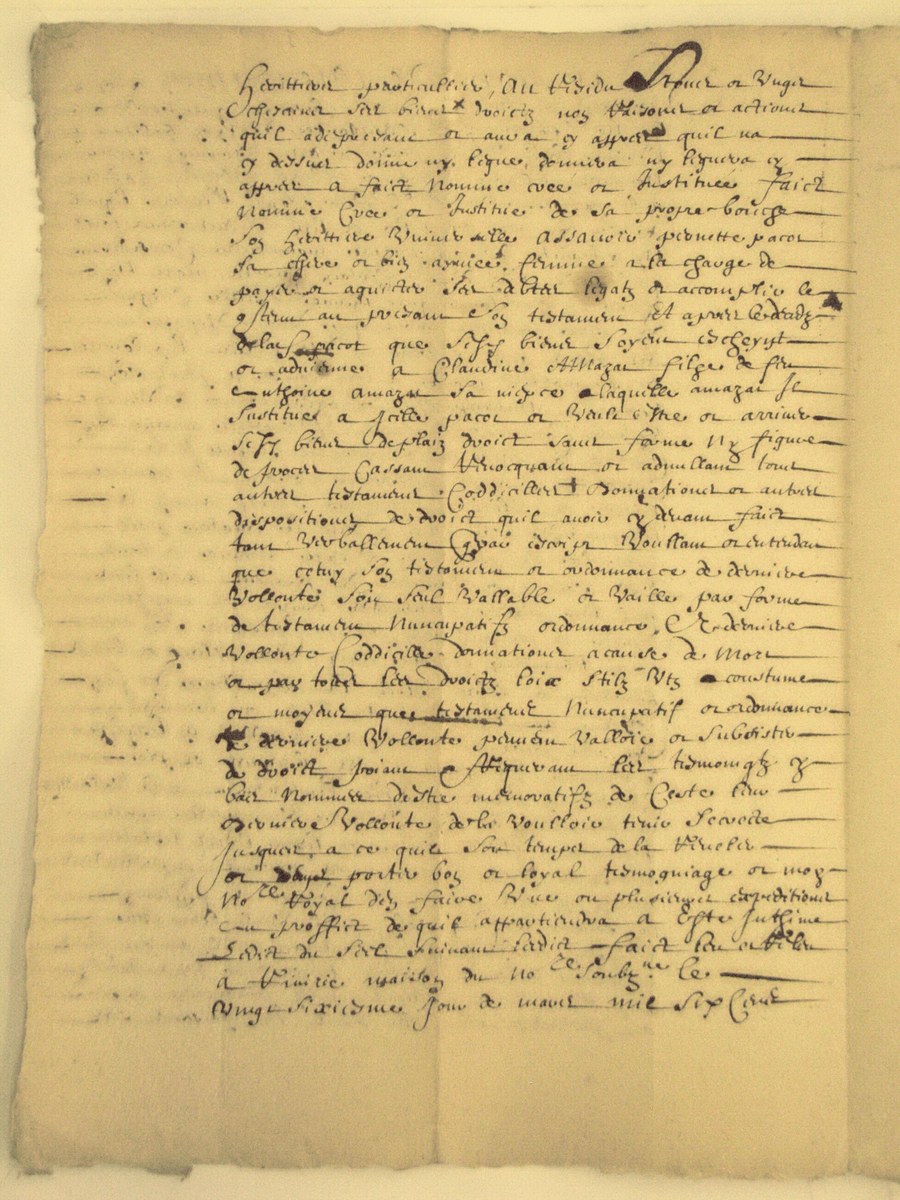 herittiere particulliere, Au residu
ses biens droictz noz raisons et actions
quil a de present et aura cy apprez quil na
cy dessus donné ny legué, donnera ny leguera cy
apprez a faict nomme cree et Instituée faict
nomme Cree et Institue de sa propre bouche
son herittiere Universelle assavoir pernette pacot
sa chere et bien aymee femme a la charge de
payer et aquitter ses debtes legatz et accomplir le
contenu au present son testament et aprez le decedz
de la pacot que biens soyent
et a Claudine Amazar filhe de feu
anthoine amazar sa niepce laquelle amazar Il
Institue a Icelle pacot et Veult estre et
biens de plain droict sans forme ny figure
de procez Cassant revocquant et adnullant tous
autres testamens Coddicilles donnations et autres
dispositions de droict quil avoir cy devant faict
tant Verballement que escript Voullant et entendant
que cetuy son testament et ordonnance de derniere
Vollonté soit seul Vallable et Vaille par forme
de testament Nuncupatifz ordonnance de derniere
Vollonte Coddicille donnations a cause de Mort
et par tous les droictz loix stilz Utz coustume
et moyens que testamens Nuncupatif et ordonnance
de derniere Vollonte peuvent Valloir et Subsister
de droict priant & Requerant les tesmoingtz cy
bas Nommez destre memoratifz de Ceste
derniere Vollonte de la Voulloir tenir Secrette
Jusques a ce quil soit temps de la Reveler
et porter bon et loyal tesmoignage et moy
No.re Royal den faire Une ou plusieurs expeditions
au proffict de quil appartiendra a Este Inthimé
Ledict du Seel suivant Ledict faict leu et releu
a maison du No.re Soubz.ne le
Vingt Sixiesme Jour de mars mil six Cens